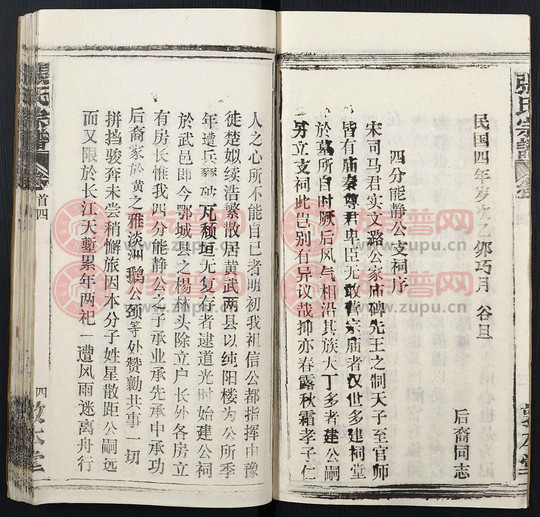 張氏宗譜
民国四年岁次乙卯 月 谷旦
后裔同志
四分能静公支祠序
宋司马君实文潞公家庙碑先王之制天子至官师
皆有庙秦尊君卑臣无敢营宗庙者汉世多建祠堂
於墓所自时厥后风气相沿其族大丁多者建公嗣
另立支祠此岂别有异议哉抑亦春露秋霜孝子仁
人之心所不能自已者明初我祖信公都指挥由豫
徙楚姒续浩繁散居黄武两县以纯阳楼为公所季
年遭兵 破瓦颓垣无复存者逮道光时始建公祠
於武邑即今鄂城县之杨林头除立户长外各房立
有房长惟我四分能静公之子承业承先承中承功
后裔家於黄之雅淡洲鹅公颈等处赞勷共事一切
拼挡骏奔未尝稍懈旅因本分子姓星散距公嗣远
而又限於长江天堑累年两祀一遭风雨迷离舟行
張氏宗譜
首四
四
敦本堂
族谱网
www.zupu.cn
族谱网
www.zupu.cn